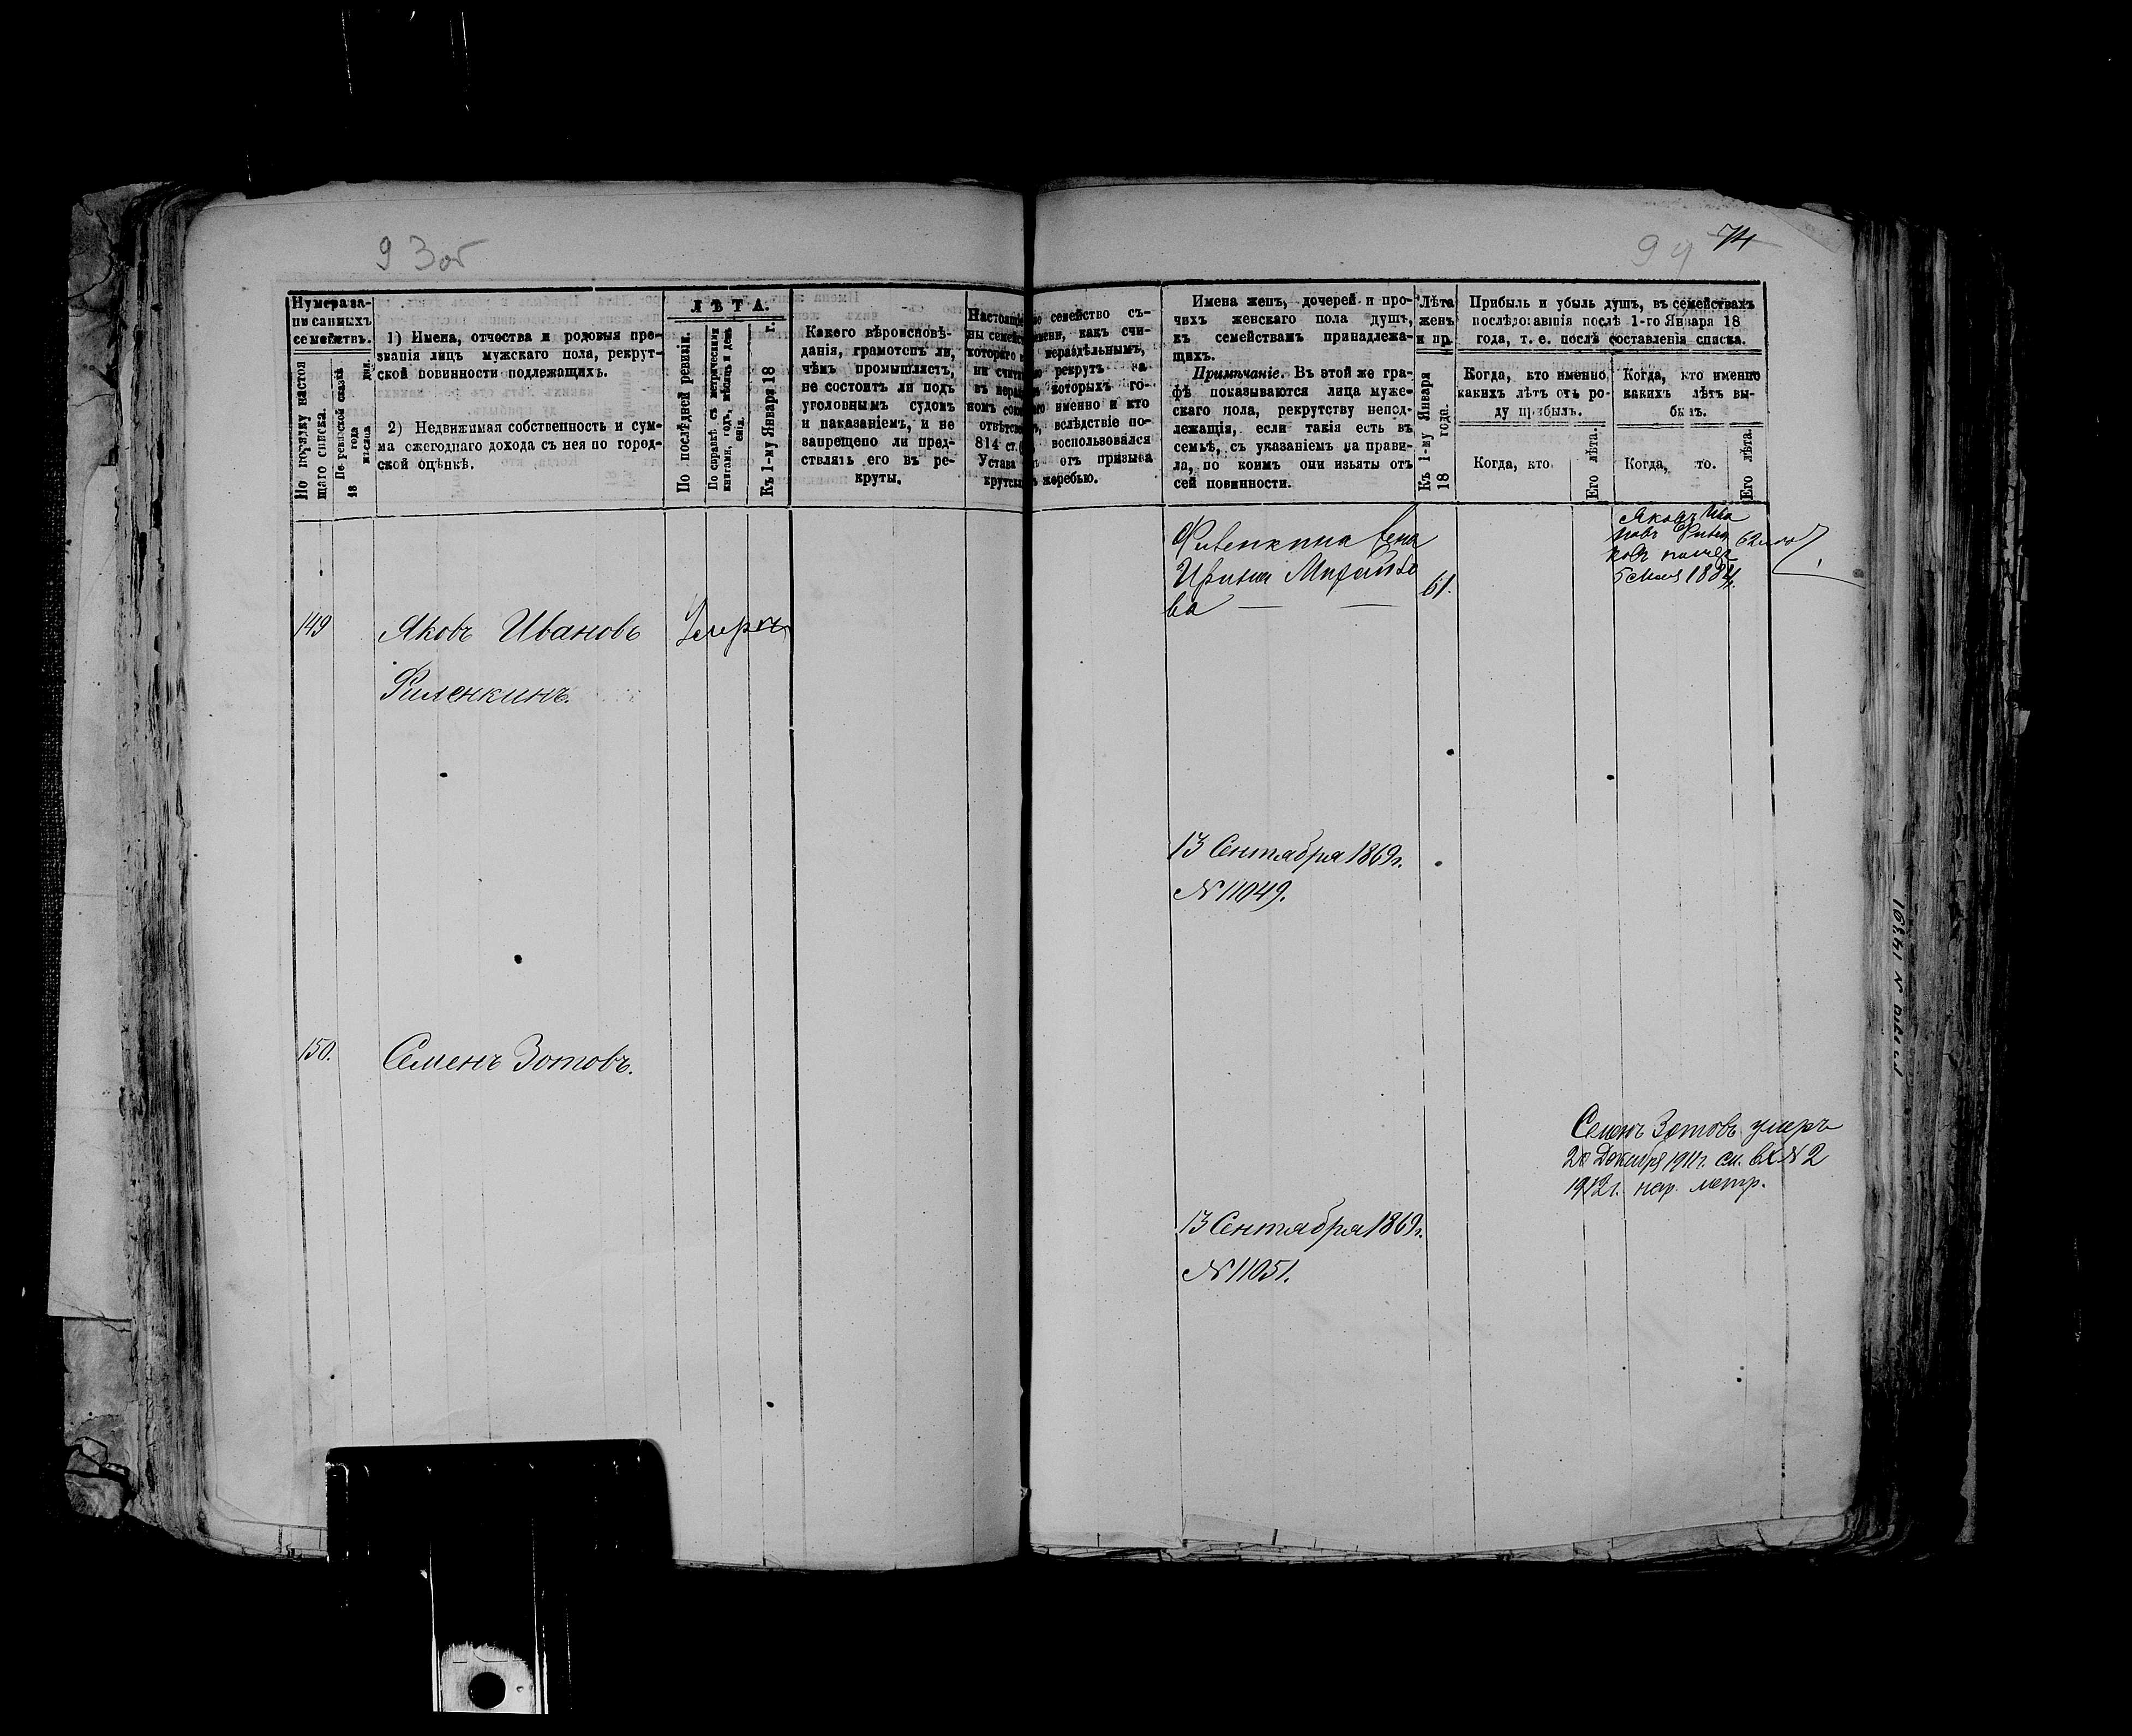 93об
94 74
Нумера за-
писанныхъ
семействъ.
По порядку настоя
щаго списка.
По ревизской сказкѣ
18 года
мѣсяца дня.
1) Имена, отчества и родовыя про-
званія лицъ мужскаго пола, рекрут-
ской повинности подлежащихъ.
2) Недвижимая собственность и сум-
ма ежегоднаго дохода съ нея по город-
ской оцѣнкѣ.
ЛѢТА.
По послѣдней ревизіи.
По справкѣ съ метрическими
книгами, годъ, мѣсяцъ и день
Къ 1-му Января 18 г.
Какого вѣроисповѣ-
данія, грамотенъ ли,
чѣмъ промышляетъ,
не состоитъ ли подъ
уголовнымъ судомъ
и наказаніемъ, и не
запрещено ли пред-
ставлять его въ ре-
круты.
Настоящее семейство съ
которого времени, какъ счи-
нераздѣльнымъ,
рекрутъ за
которыхъ го-
именно и кто
вслѣдствіе по-
814 ст. воспользовался
Устава отъ призыва
жеребью.
Имена женъ, дочерей и про-
чихъ женскаго пола душъ,
къ семействамъ принадлежа-
щихъ.
Примѣчаніе. Въ этой же гра-
фѣ показываются лица муже-
скаго пола, рекрутству непод-
лежащія, если такія есть въ
семьѣ, съ указаніемъ на прави-
ла, по коимъ они изъяты отъ
сей повинности.
Лѣта
женъ
и пр.
Къ 1-му Января
18 года.
Прибыль и убыль душъ, въ семействахъ
послѣдовавшія послѣ 1-го Января 18
года, т. е. послѣ составленія списка.
Когда, кто именно,
какихъ лѣтъ отъ ро-
ду прибылъ.
Когда, кто именно
какихъ лѣтъ вы-
былъ.
Когда, кто.
Его лѣта.
Когда, то.
Его лѣта.
149
Яковъ Ивановъ
Филенкинъ.
Умеръ
Филенкина жена
Ирина Михайло
ва
61.
Яковъ Ива
новъ
62
1884.
13 Сентября 1869г.
№ 11049.
150.
Семенъ Зотовъ.
Семенъ Зотовъ умеръ
20 Декабря 1911г. см. вх № 2
1912г. нар. метр.
13 Сентября 1869г.
№ 11051.